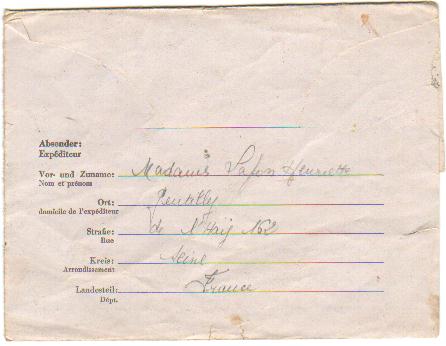 Absender:
Expéditeur
Vor- und Zuname: Madame Lafon Henriette
Nom et prénom
Ort: Gentilly
domicile de l'expéditeur
Straße: de l'Haÿ No2
Rue
Kreis: Seine
Arrondissement
Landesteil: France
Dépt.